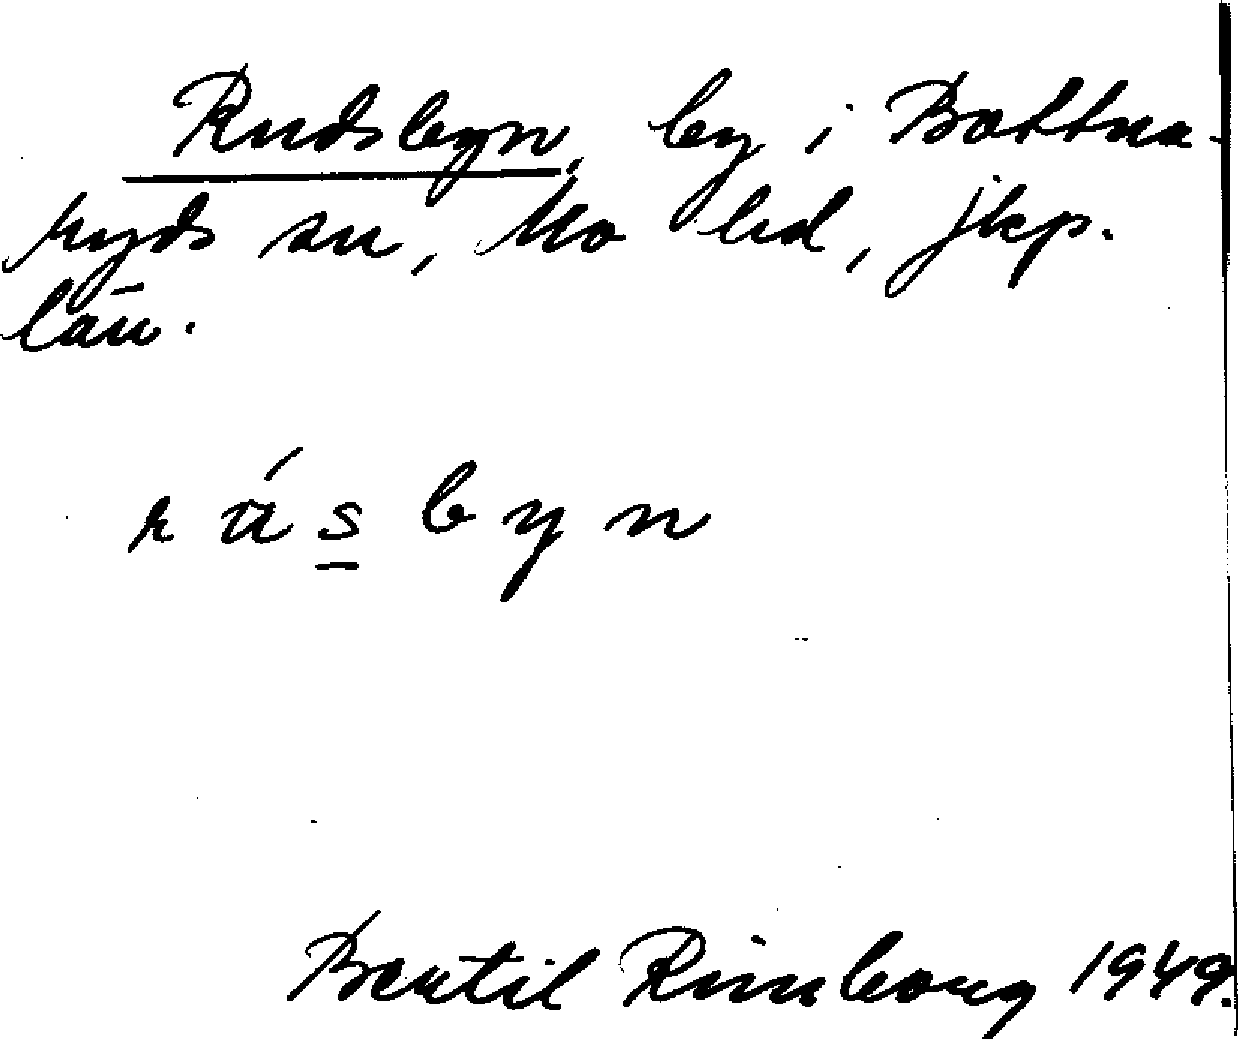 Rudsbyn, by i Bottna-
ryds sn, Mo hd, Jkp.
län.
Bertil Rimborg 1949.